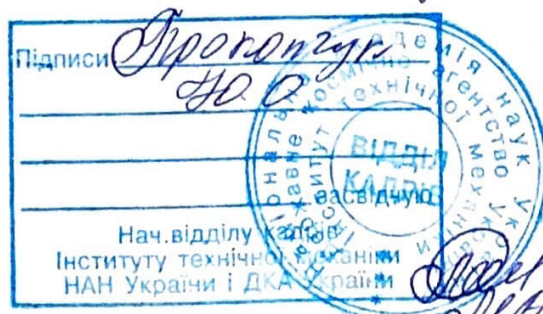 Підписи Прокопчук
Ю.О.
засвідчую
Нач.відділу кадрів
Інституту технічної механіки
НАН України і ДКА України
ВІДДІЛ
КАДРІВ
академія наук Укр
державне космічне агентство Укр
Інститут технічної механіки